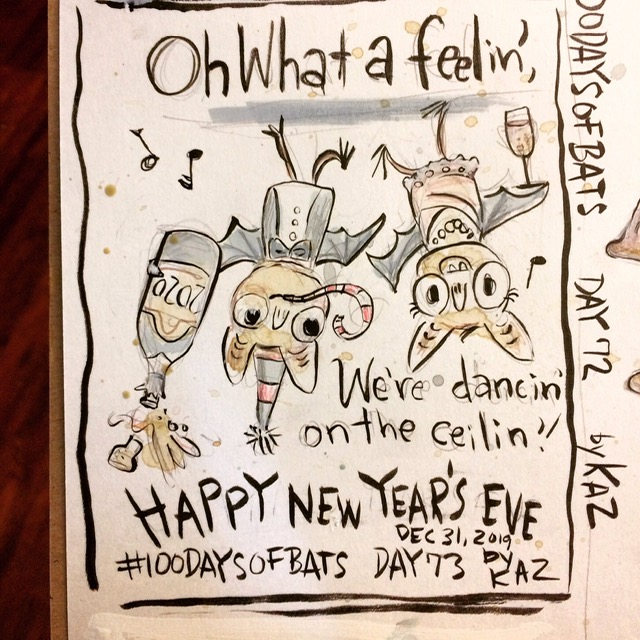 Oh What a feelin',
2020
We're dancin'
on the ceilin'!
HAPPY NEW YEAR'S EVE
DEC 31, 2019
#100DAYSOFBATS DAY 73 by KAZ
00DAYSOFBATS DAY 72 by KAZ